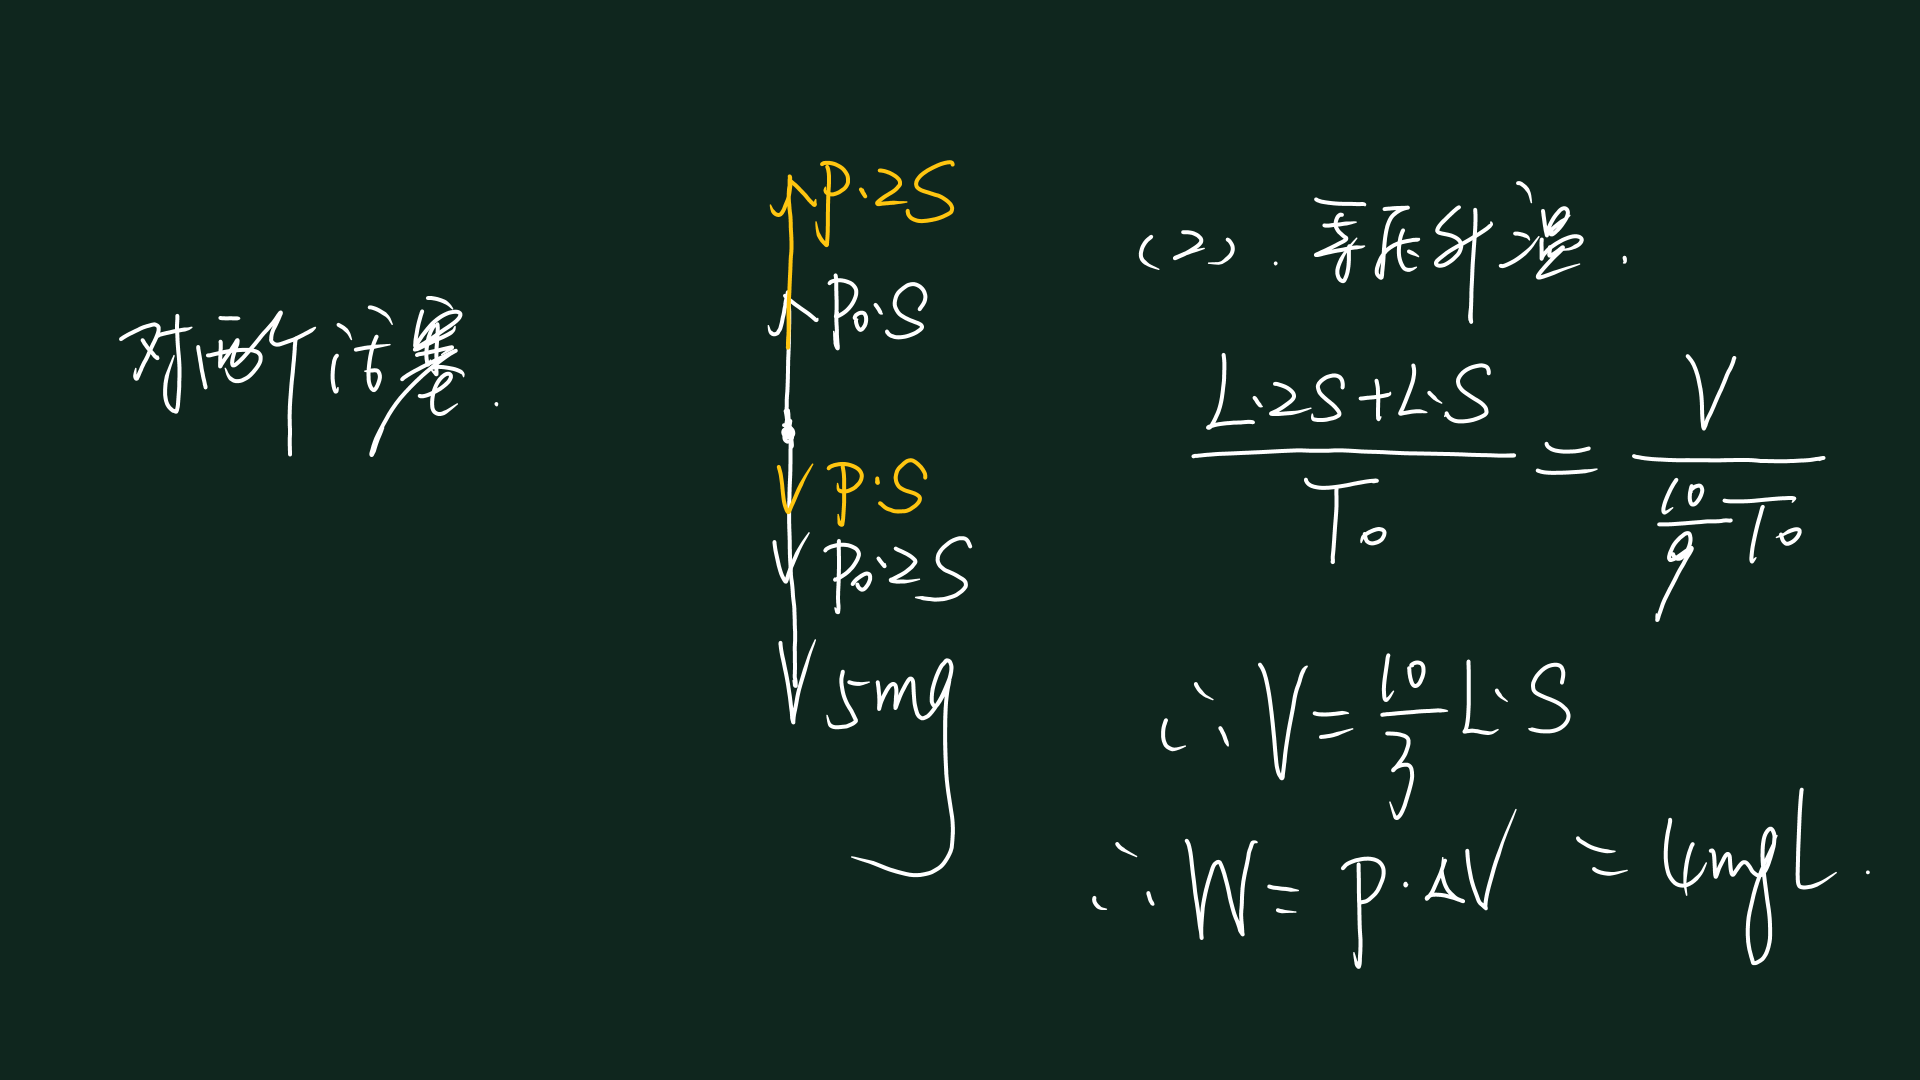 对两个活塞.
P·2S
P₀·S
P·S
P₀·2S
5mg
(2). 等压升温.
\frac{L·2S+L·S}{T₀} = \frac{V}{\frac{10}{9}T₀}
∴ V = \frac{10}{3} L·S
∴ W = P·ΔV = 4mgL.